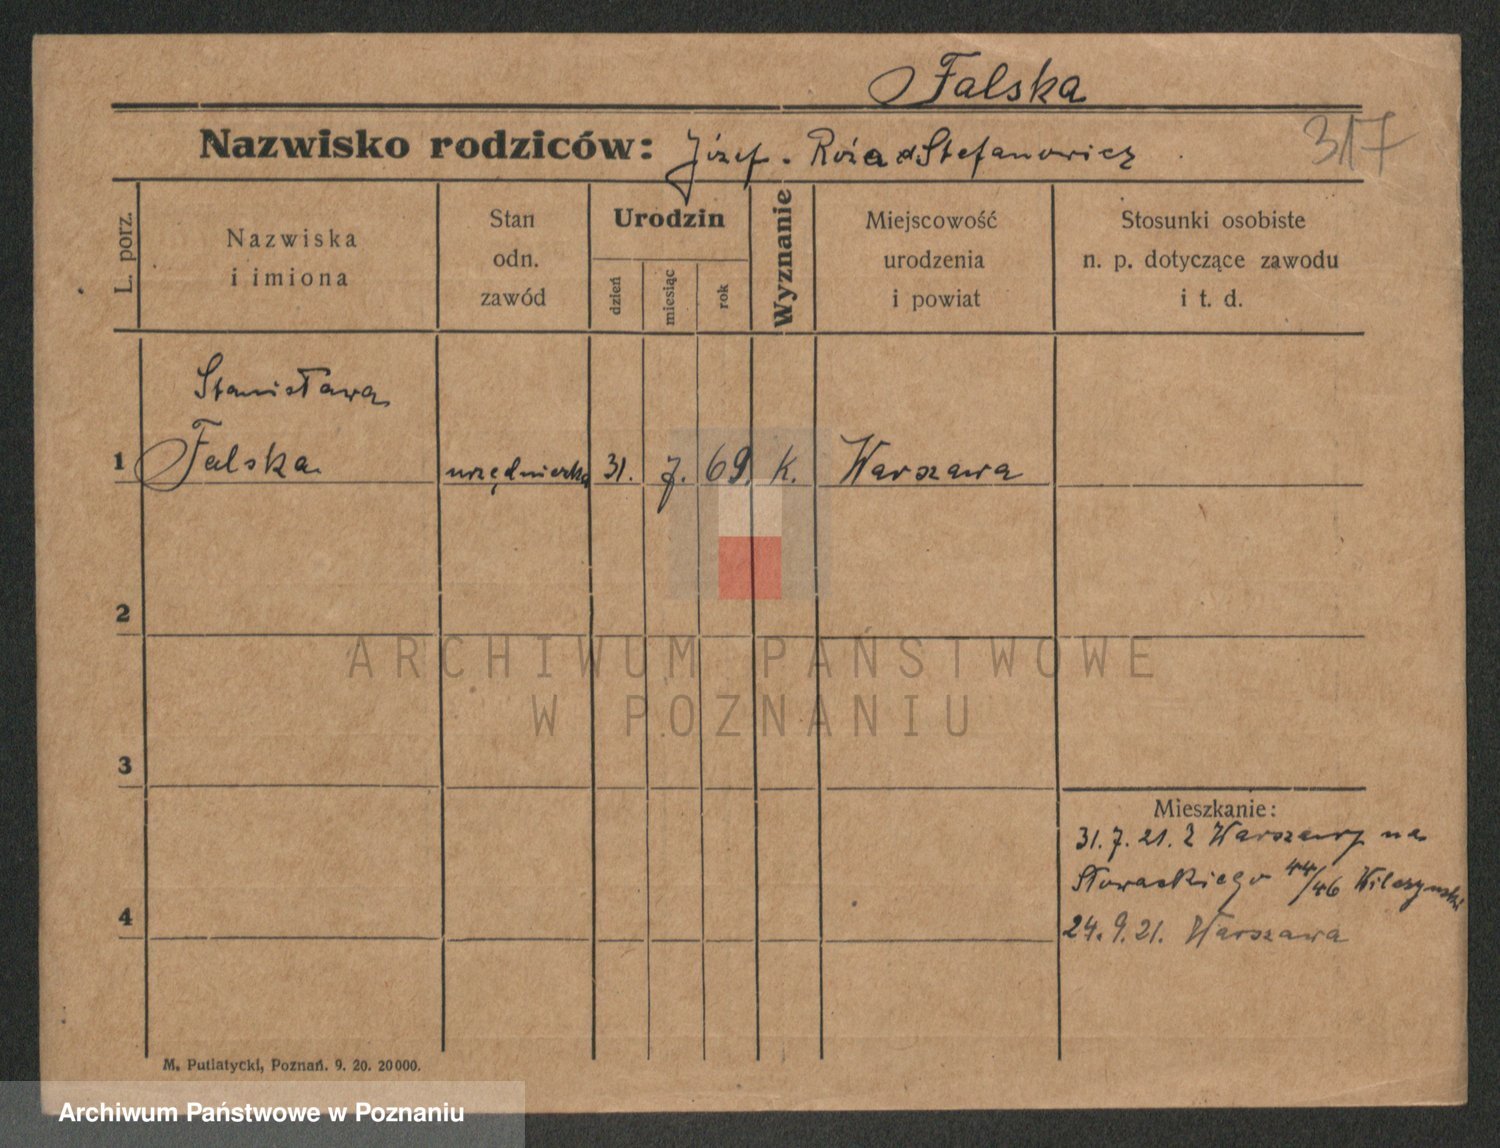 Falska
317
Nazwisko rodziców: Józef - Róża d Stefanowicz
L. porz.
Nazwiska
i imiona
Stan
odn.
zawód
Urodzin
dzień
miesiąc
rok
Wyznanie
Miejscowość
urodzenia
i powiat
Stosunki osobiste
n. p. dotyczące zawodu
i t. d.
Stanisława
1 Falska urzędniczka 31. 7. 69. k. Warszawa
2
ARCHIWUM PAŃSTWOWE
W POZNANIU
3
Mieszkanie:
31.7.21. Z Warszawy na
Słowackiego 44/46 Wilczynski
4
24.9.21. Warszawa
M. Putiatycki, Poznań. 9. 20. 20000.
Archiwum Państwowe w Poznaniu